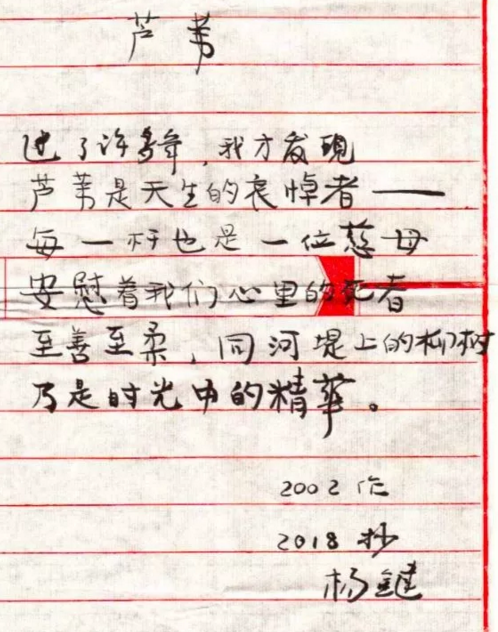 芦苇
过了许多年，我才发现
芦苇是天生的哀悼者——
每一杆也是一位慈母
安慰着我们心里的死者
至善至柔，同河堤上的柳树
乃是时光中的精华。
2002作
2018抄
杨键